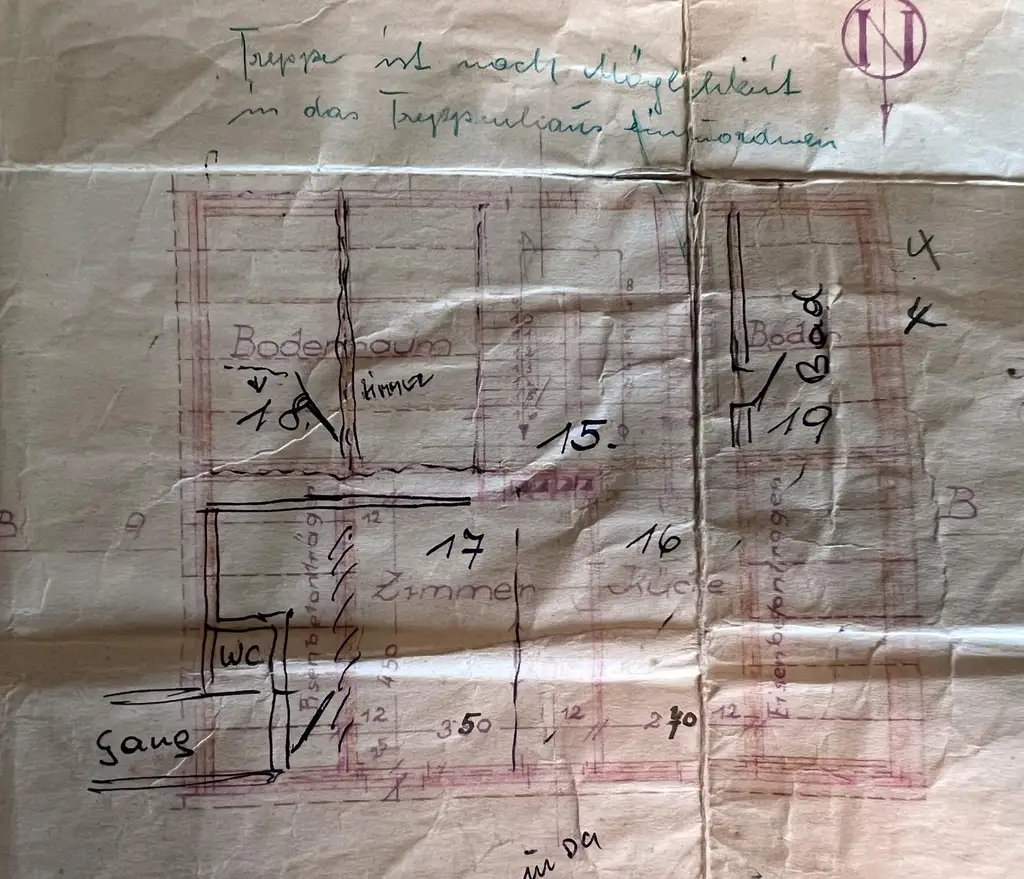 N
Treppe ist noch Möglichkeit
in das Treppenhaus
Bodenraum
18.
Zimmer
15.
Boden
Bad
19
4
4
B
D
B
12
17
16
Zimmer
Küche
Eisenbetonträger
Eisenbetonträger
WC
450
Gang
12
350
12
270
12
25
in DG